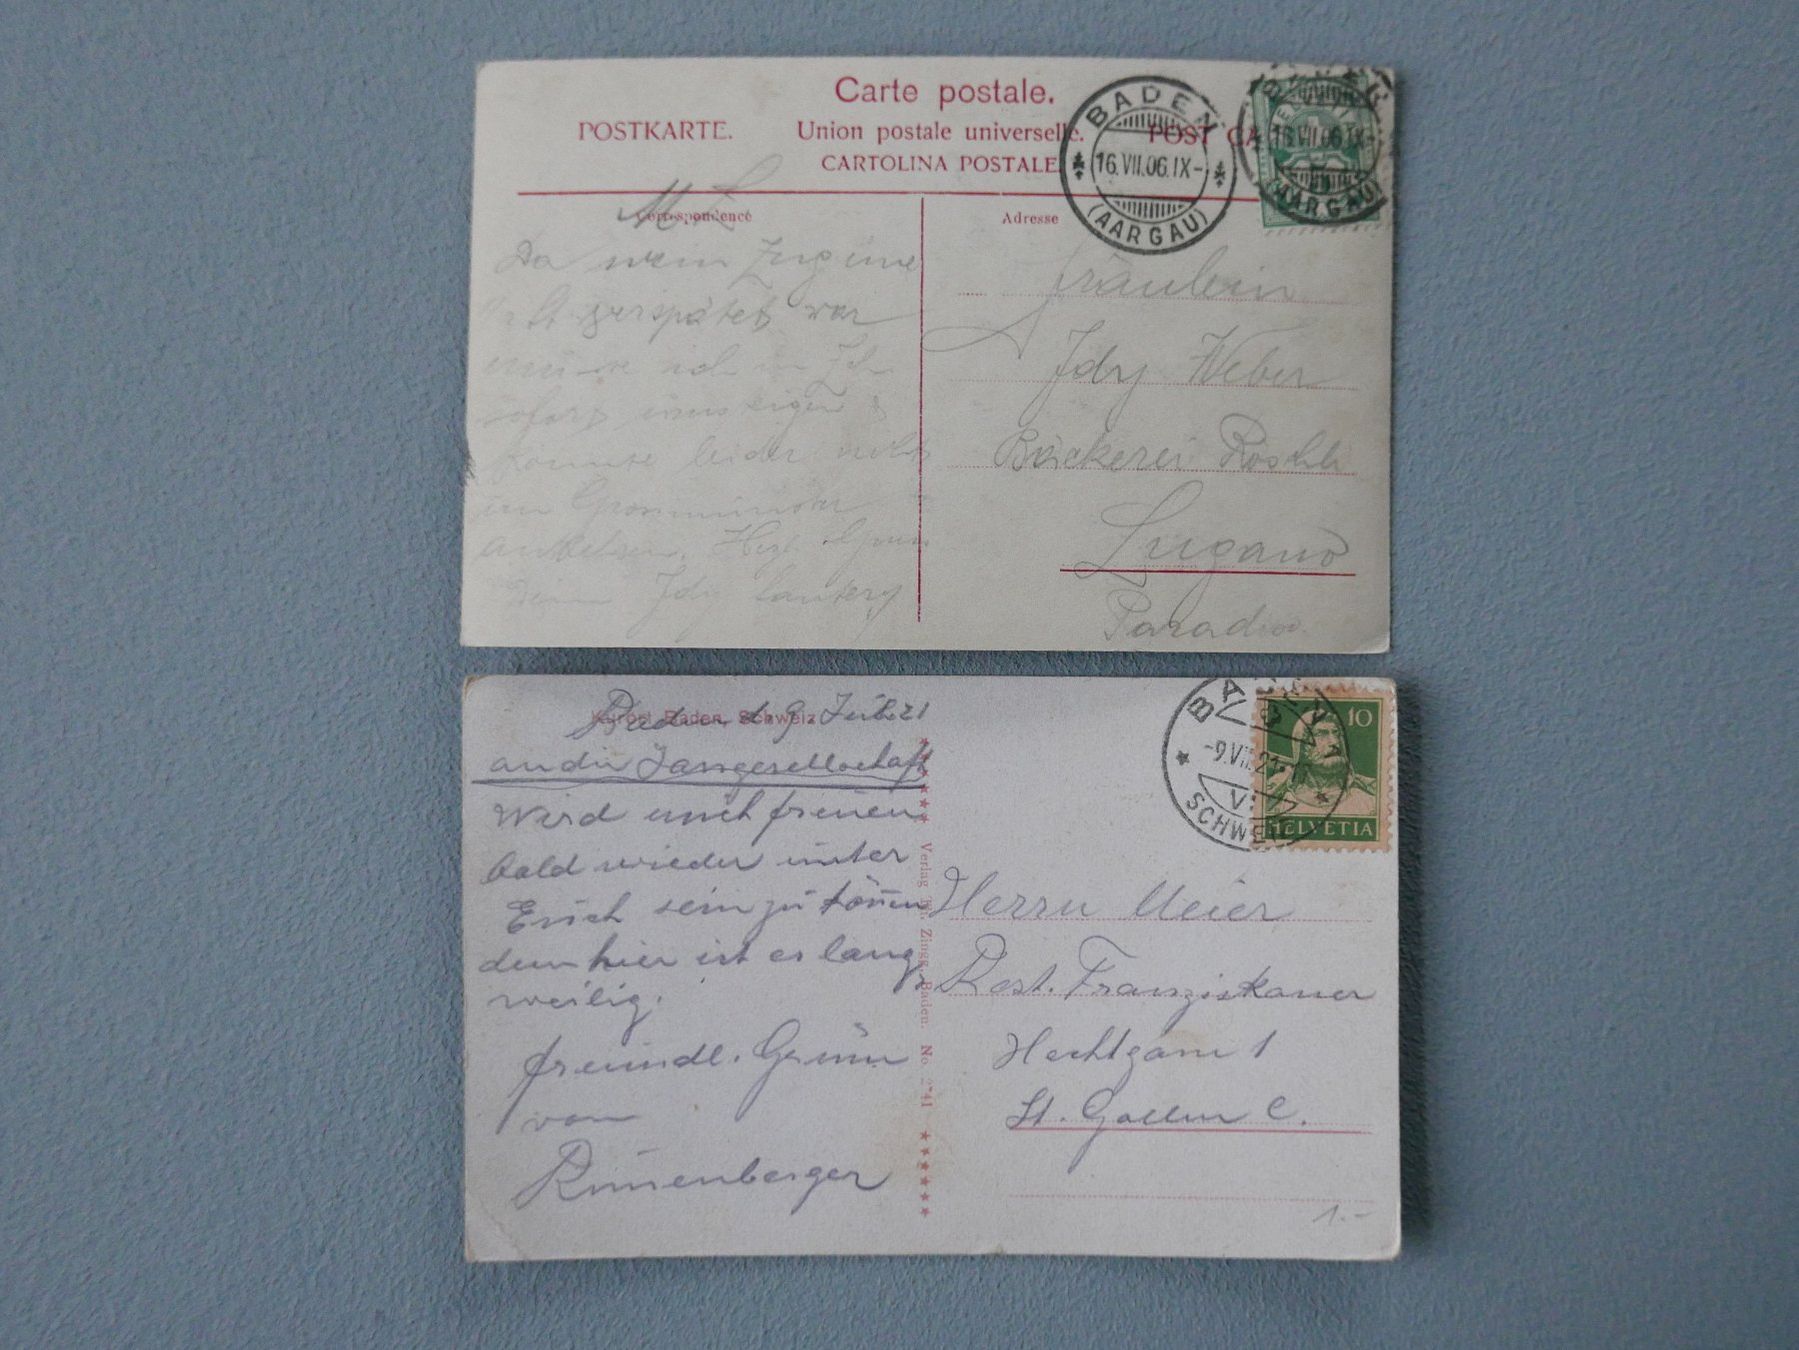 Carte postale.
POSTKARTE. Union postale universelle. POST CA
CARTOLINA POSTALE
BADEN
16.VII.06.IX-
(AARGAU)
16.VII.06.IX-
(AARGAU)
Correspondence
Adresse
Da mein Zug eine
verspätet war
ich in
sofort einsteigen &
konnte leider nicht
im Grossmünster
Idy
Fräulein
Idy Weber
Bäckerei
Lugano
Paradiso.
Kurort Baden, Schweiz
Baden d. 9 Juli 21
an die Jassgesellschaft
Wird mich freuen
bald wieder unter
Euch sein zu können
denn hier ist es lang
weilig.
freundl. Gruss
von
BADEN
-9.VII.21
SCHWEIZ
10
HELVETIA
Verlag Zingg, Baden. No. 2741
Herrn Meier
Rest. Franziskaner
Hechtgasse 1
St. Gallen C.
1.-